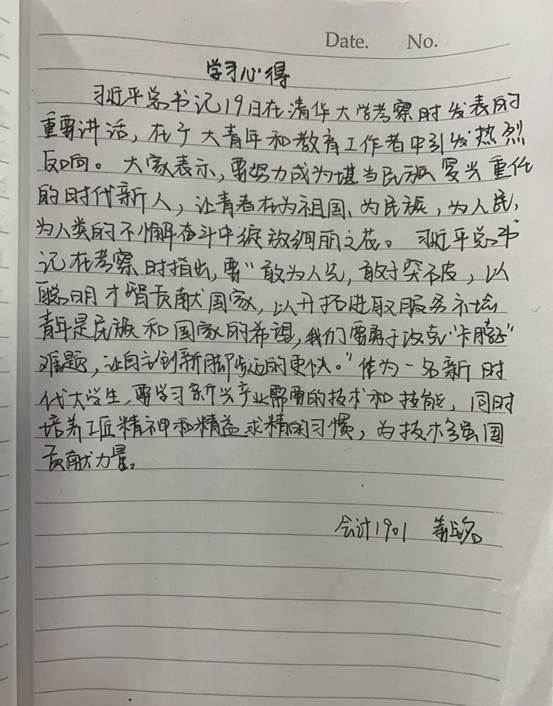 Date. No.
学习心得
习近平总书记19日在清华大学考察时发表的
重要讲话，在广大青年和教育工作者中引发热烈
反响。大家表示，要努力成为堪当民族复兴重任
的时代新人，让青春在为祖国、为民族，为人民，
为人类的不懈奋斗中绽放绚丽之花。习近平总书
记在考察时指出，要"敢为人先，敢于突破，以
聪明才智贡献国家，以开拓进取服务社会
青年是民族和国家的希望，我们要勇于攻克"卡脖子"
难题，让自主创新脚步迈的更快。"作为一名新时
代大学生，要学习新兴产业需要的技术和技能，同时
培养工匠精神和精益求精的习惯，为技术强国
贡献力量。
会计1901